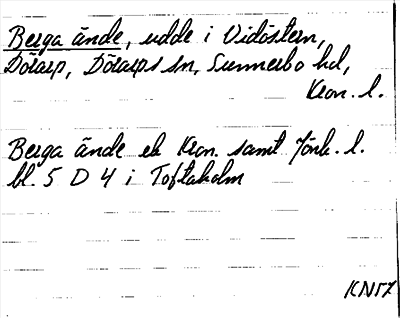 Berga ände, udde i Vidöstern,
Dörarp, Dörarps sn, Sunnerbo hd,
Kron. l.
Berga ände ek Kron. samt Jönk. l.
bl. 5 D 4 i Toftaholm
KN57